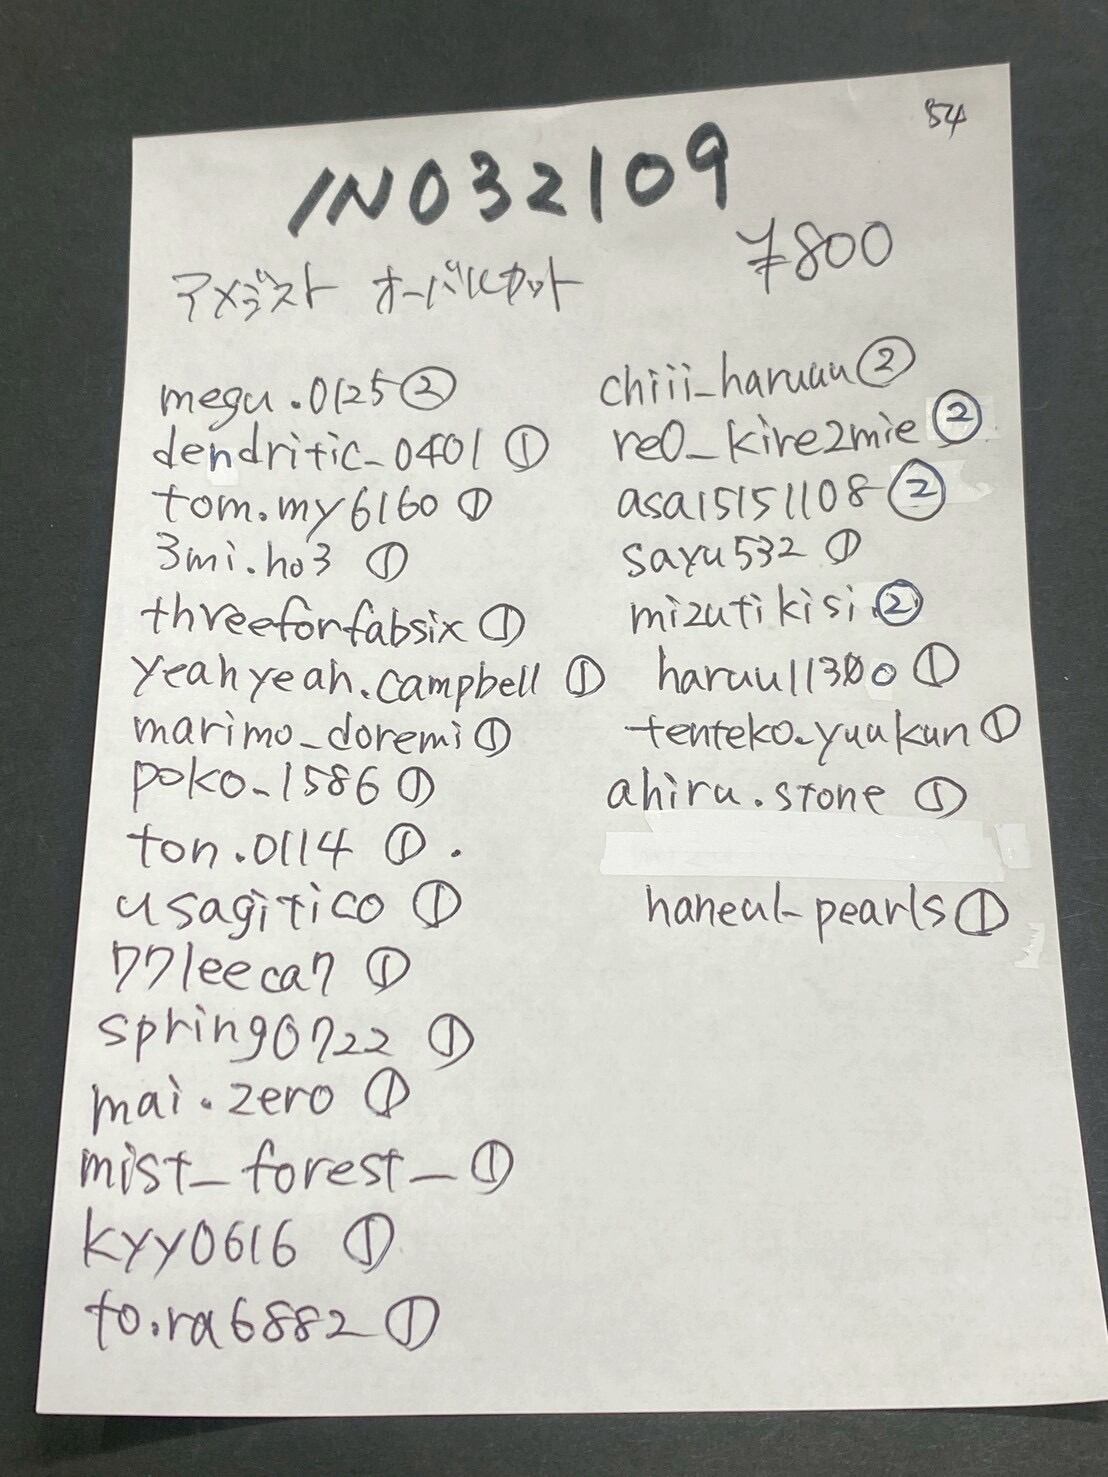 54
IN032109
¥800
アメジスト オーバルカット
megu.0125②
dendritic_0401 ①
tom.my6160 ①
3mi.ho3 ①
threeforfabsix ①
yeahyeah.campbell ①
marimo_doremi ①
poko_1586 ①
ton.0114 ①.
usagitico ①
77leeca7 ①
spring0722 ①
mai.zero ①
mist_forest_ ①
kyy0616 ①
to.ra6882 ①
chiii_haruuu②
re0_kire2mie②
asa15151108②
sayu532 ①
mizutikisi.②
haruu11300 ①
tenteko.yuukun①
ahiru.stone ①
haneul_pearls①